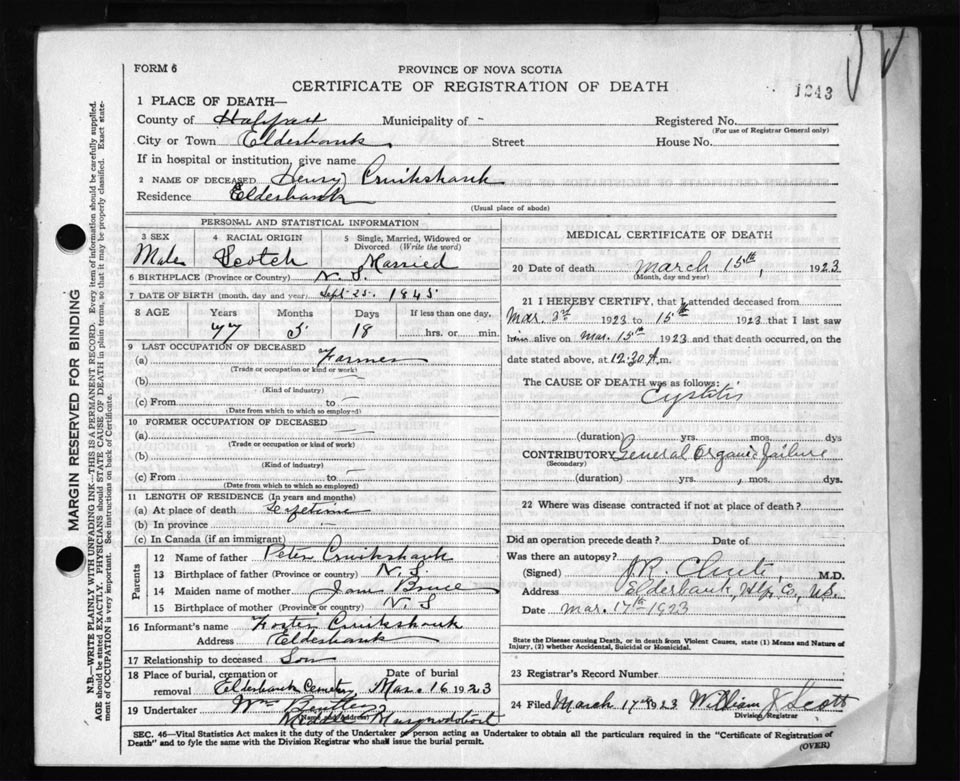 FORM 6
PROVINCE OF NOVA SCOTIA
CERTIFICATE OF REGISTRATION OF DEATH
1243
1 PLACE OF DEATH—
County of Halifax Municipality of - Registered No.
(For use of Registrar General only)
City or Town Elderbank Street House No.
If in hospital or institution, give name
2 NAME OF DECEASED Henry Cruikshank
Residence Elderbank
(Usual place of abode)
PERSONAL AND STATISTICAL INFORMATION
3 SEX 4 RACIAL ORIGIN 5 Single, Married, Widowed or Divorced (Write the word)
Male Scotch Married
6 BIRTHPLACE (Province or Country) N. S.
7 DATE OF BIRTH (month, day and year) Sept 25. 1845
8 AGE Years Months Days If less than one day,
77 5 18 hrs. or min.
9 LAST OCCUPATION OF DECEASED
(a) Farmer
(Trade or occupation or kind or work)
(b) —
(Kind of industry)
(c) From to —
(Date from which to which so employed)
10 FORMER OCCUPATION OF DECEASED
(a) —
(Trade or occupation or kind of work)
(b)
(Kind of industry)
(c) From to —
(Date from which to which so employed)
11 LENGTH OF RESIDENCE (In years and months)
(a) At place of death Lifetime
(b) In province —
(c) In Canada (if an immigrant)
Parents
12 Name of father Peter Cruikshank
13 Birthplace of father (Province or country) N. S.
14 Maiden name of mother Jane Bruce
15 Birthplace of mother (Province or country) N. S
16 Informant's name Foster Cruikshank
Address Elderbank
17 Relationship to deceased Son
18 Place of burial, cremation or removal Elderbank Cemetery Date of burial Mar. 16 1923
19 Undertaker Wm Bentley
(Name and address) Musquodoboit
MEDICAL CERTIFICATE OF DEATH
20 Date of death March 15th, 1923
(Month, day and year)
21 I HEREBY CERTIFY, that I attended deceased from
Mar. 3rd 1923 to 15th 1923 that I last saw
him alive on Mar. 15th 1923 and that death occurred, on the
date stated above, at 12.30 A.m.
The CAUSE OF DEATH was as follows:
Cystitis
(duration) yrs. mos. dys
CONTRIBUTORY General Organic failure
(Secondary)
(duration) yrs. mos. dys.
22 Where was disease contracted if not at place of death?
Did an operation precede death? Date of
Was there an autopsy?
(Signed) M.D.
Address Elderbank, Hfx Co, N.S.
Date Mar. 17th 1923
State the Disease causing Death, or in death from Violent Causes, state (1) Means and Nature of
Injury, (2) whether Accidental, Suicidal or Homicidal.
23 Registrar's Record Number
24 Filed March 17th 1923 William J Scott
Division Registrar
SEC. 46—Vital Statistics Act makes it the duty of the Undertaker or person acting as Undertaker to obtain all the particulars required in the "Certificate of Registration of
Death" and to fyle the same with the Division Registrar who shall issue the burial permit. (OVER)
MARGIN RESERVED FOR BINDING
N.B.—WRITE PLAINLY WITH UNFADING INK—THIS IS A PERMANENT RECORD. Every item of information should be carefully supplied.
AGE should be stated EXACTLY. PHYSICIANS should STATE CAUSE OF DEATH in plain terms, so that it may be properly classified. Exact statement of OCCUPATION is very important. See instructions on back of Certificate.